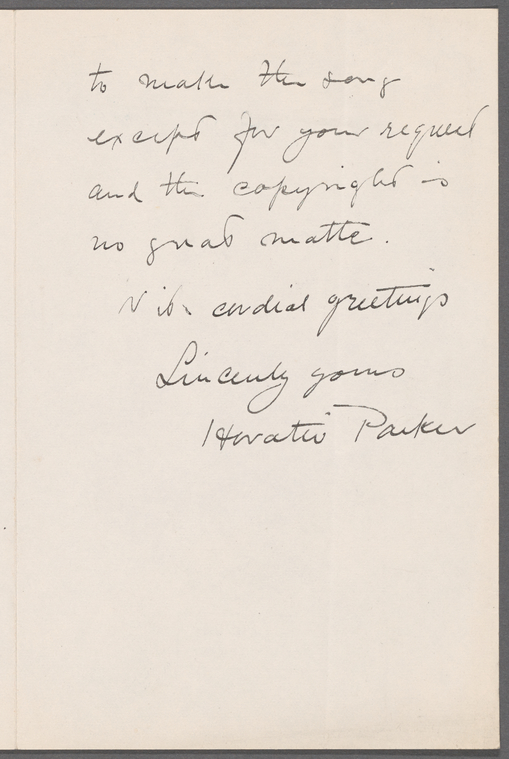 to make the song
except for your request
and the copyright is
no great matter.
With cordial greetings
Sincerely yours
Horatio Parker